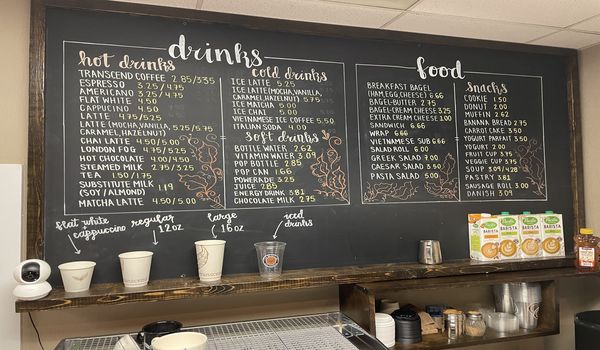 drinks
hot drinks
TRANSCEND COFFEE 2.85/3.35
ESPRESSO 3.25/3.75
AMERICANO 3.25/4.75
FLAT WHITE 4.50
CAPPUCINO 4.50
LATTE 4.75/5.25
LATTE (MOCHA, VANILLA, 5.25/5.75
CARAMEL, HAZELNUT)
CHAI LATTE 4.50/5.00
LONDON FOG 4.75/5.25
HOT CHOCOLATE 4.00/4.50
STEAMED MILK 2.75/3.25
TEA 1.50/1.75
SUBSTITUTE MILK 1.19
(SOY/ALMOND)
MATCHA LATTE 4.50/5.50
cold drinks
ICE LATTE 5.25
ICE LATTE (MOCHA, VANILLA,
CARAMEL, HAZELNUT) 5.75
ICE MATCHA 5.00
ICE CHAI 5.50
VIETNAMESE ICE COFFEE 5.50
ITALIAN SODA 4.00
soft drinks
BOTTLE WATER 2.62
VITAMIN WATER 3.09
POP BOTTLE 2.85
POP CAN 1.66
POWERADE 3.25
JUICE 2.85
ENERGY DRINK 3.81
CHOCOLATE MILK 2.75
food
BREAKFAST BAGEL
(HAM, EGG, CHEESE) 6.66
BAGEL-BUTTER 2.75
BAGEL-CREAM CHEESE 3.25
EXTRA CREAM CHEESE 1.00
SANDWICH 6.66
WRAP 6.66
VIETNAMESE SUB 6.66
SALAD ROLL 6.00
GREEK SALAD 7.00
CAESAR SALAD 7.00
PASTA SALAD 6.50
snacks
COOKIE 1.50
DONUT 2.00
MUFFIN 2.62
BANANA BREAD 2.75
CARROT CAKE 3.50
YOGURT PARFAIT 3.50
YOGURT 2.00
FRUIT CUP 3.75
VEGGIE CUP 3.75
SOUP 3.09/4.28
PASTRY 3.81
SAUSAGE ROLL 3.00
DANISH 0.97
flat white
cappuccino
regular
12oz
large
16oz
iced
drinks
BARISTA
BARISTA
BARISTA
BARISTA